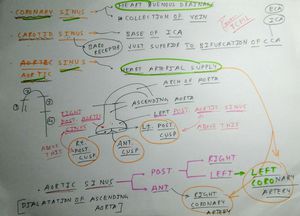 CORONARY SINUS → HEART VENOUS DRAINAGE
* COLLECTION OF VEIN
CAROTID SINUS → BASE OF ICA
BARO RECEPTOR JUST SUPERIOR TO BIFURCATION OF CCA
ECA
ICA
AORTIC SINUS → HEART ARTERIAL SUPPLY
AORTIC
ARCH OF AORTA
ASCENDING AORTA
RIGHT POST. AORTIC SINUS
LEFT POST. AORTIC SINUS
ABOVE THIS
RT. POST CUSP
ANT. CUSP
LT. POST CUSP
ABOVE THIS
AORTIC SINUS
POST → RIGHT
LEFT → LEFT CORONARY ARTERY
ANT → RIGHT CORONARY ARTERY
[DIALATATION OF ASCENDING AORTA]